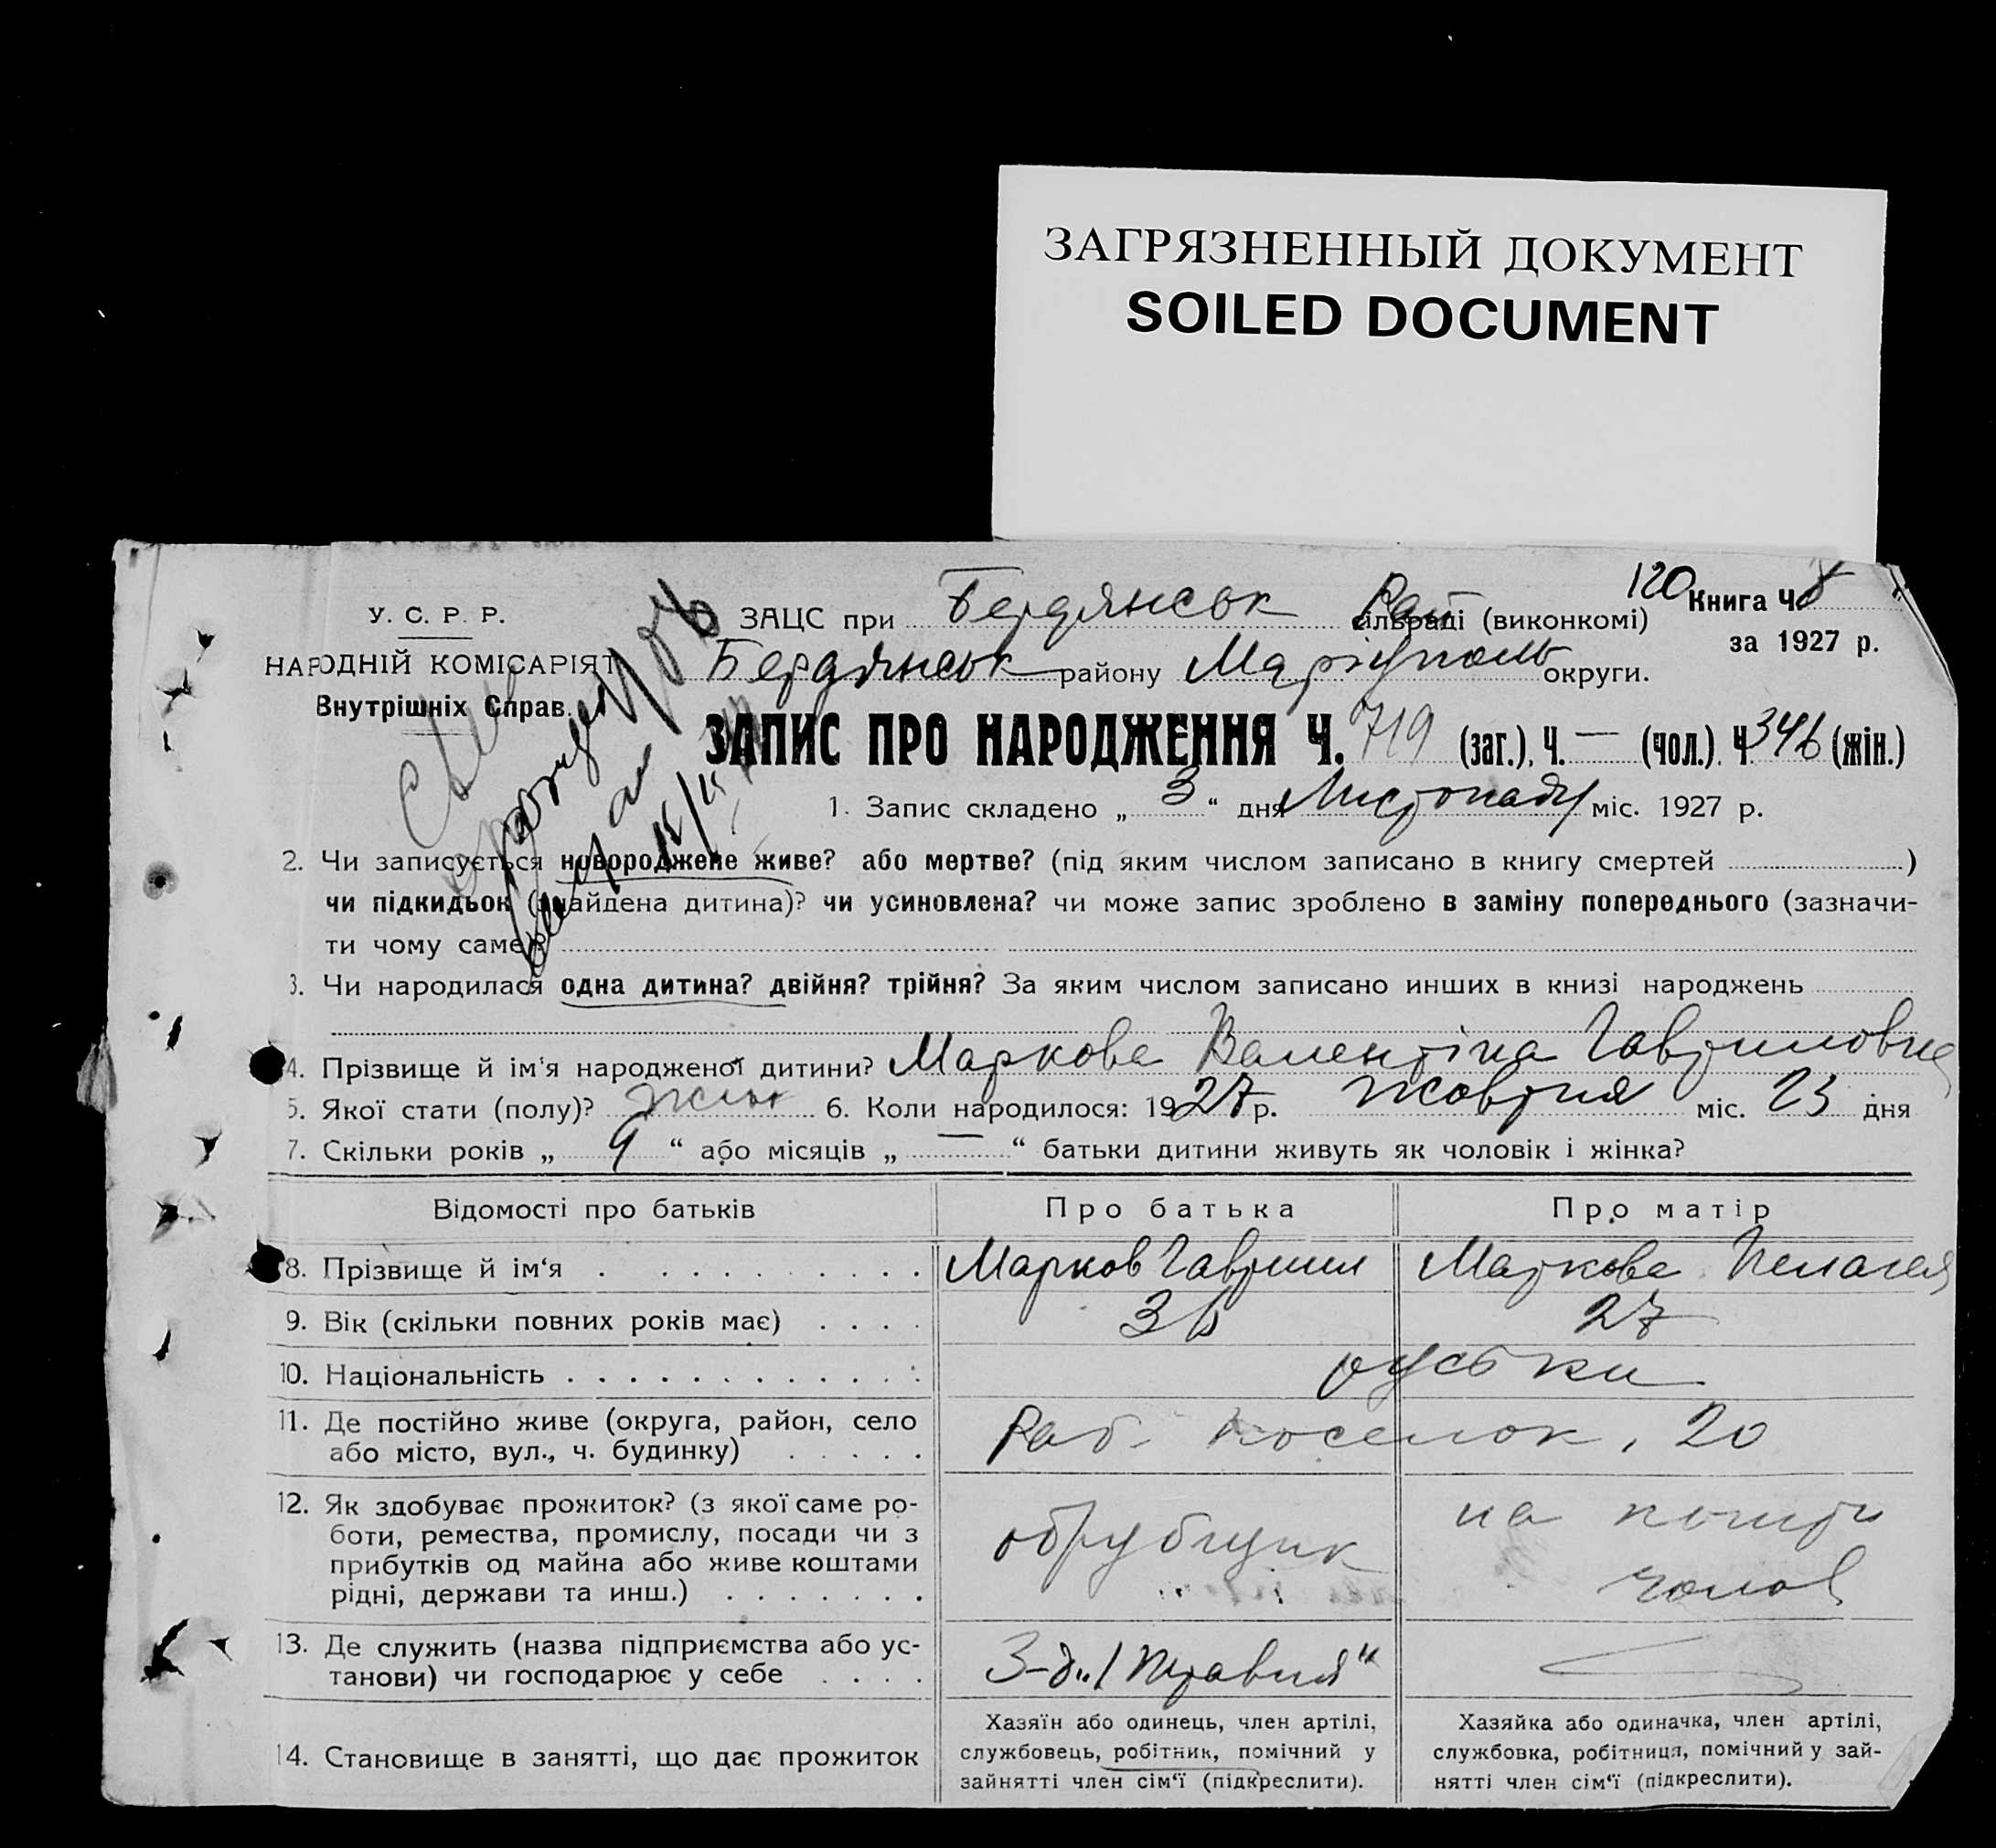 ЗАГРЯЗНЕННЫЙ ДОКУМЕНТ
SOILED DOCUMENT
120 Книга Ч. 8
за 1927 р.
У. С. Р. Р.
НАРОДНІЙ КОМІСАРІЯТ
Внутрішніх Справ.
ЗАЦС при Бердянськ Рай сільраді (виконкомі)
Бердянськ району Маріуполь округи.
ЗАПИС ПРО НАРОДЖЕННЯ Ч. 719 (заг.), Ч. — (чол.). Ч. 346 (жін.)
1. Запис складено „ 3 “ дня Листопаду міс. 1927 р.
2. Чи записується новороджене живе? або мертве? (під яким числом записано в книгу смертей )
чи підкидьок (знайдена дитина)? чи усиновлена? чи може запис зроблено в заміну попереднього (зазначи-
ти чому саме)
3. Чи народилася одна дитина? двійня? трійня? За яким числом записано инших в книзі народжень
4. Прізвище й ім‘я народженої дитини? Маркова Валентіна Гавриловна
5. Якої стати (полу)? жіно 6. Коли народилося: 1927 р. жовтня міс. 23 дня
7. Скільки років „ 9 “ або місяців „ — “ батьки дитини живуть як чоловік і жінка?
Відомості про батьків Про батька Про матір
8. Прізвище й ім‘я Марков Гаврил Маркова Пелагея
9. Вік (скільки повних років має) 36 27
10. Національність руськи
11. Де постійно живе (округа, район, село
або місто, вул., ч. будинку)
Раб. поселок, 20
12. Як здобуває прожиток? (з якої саме ро-
боти, ремества, промислу, посади чи з
прибутків од майна або живе коштами
рідні, держави та инш.)
обрубщик
на кошти
чолов
13. Де служить (назва підприємства або ус-
танови) чи господарює у себе
З-д „1 Травня“
14. Становище в занятті, що дає прожиток
Хазяїн або одинець, член артілі,
службовець, робітник, помічний у
зайнятті член сім‘ї (підкреслити).
Хазяйка або одиначка, член артілі,
службовка, робітниця, помічний у зай-
нятті член сім‘ї (підкреслити).